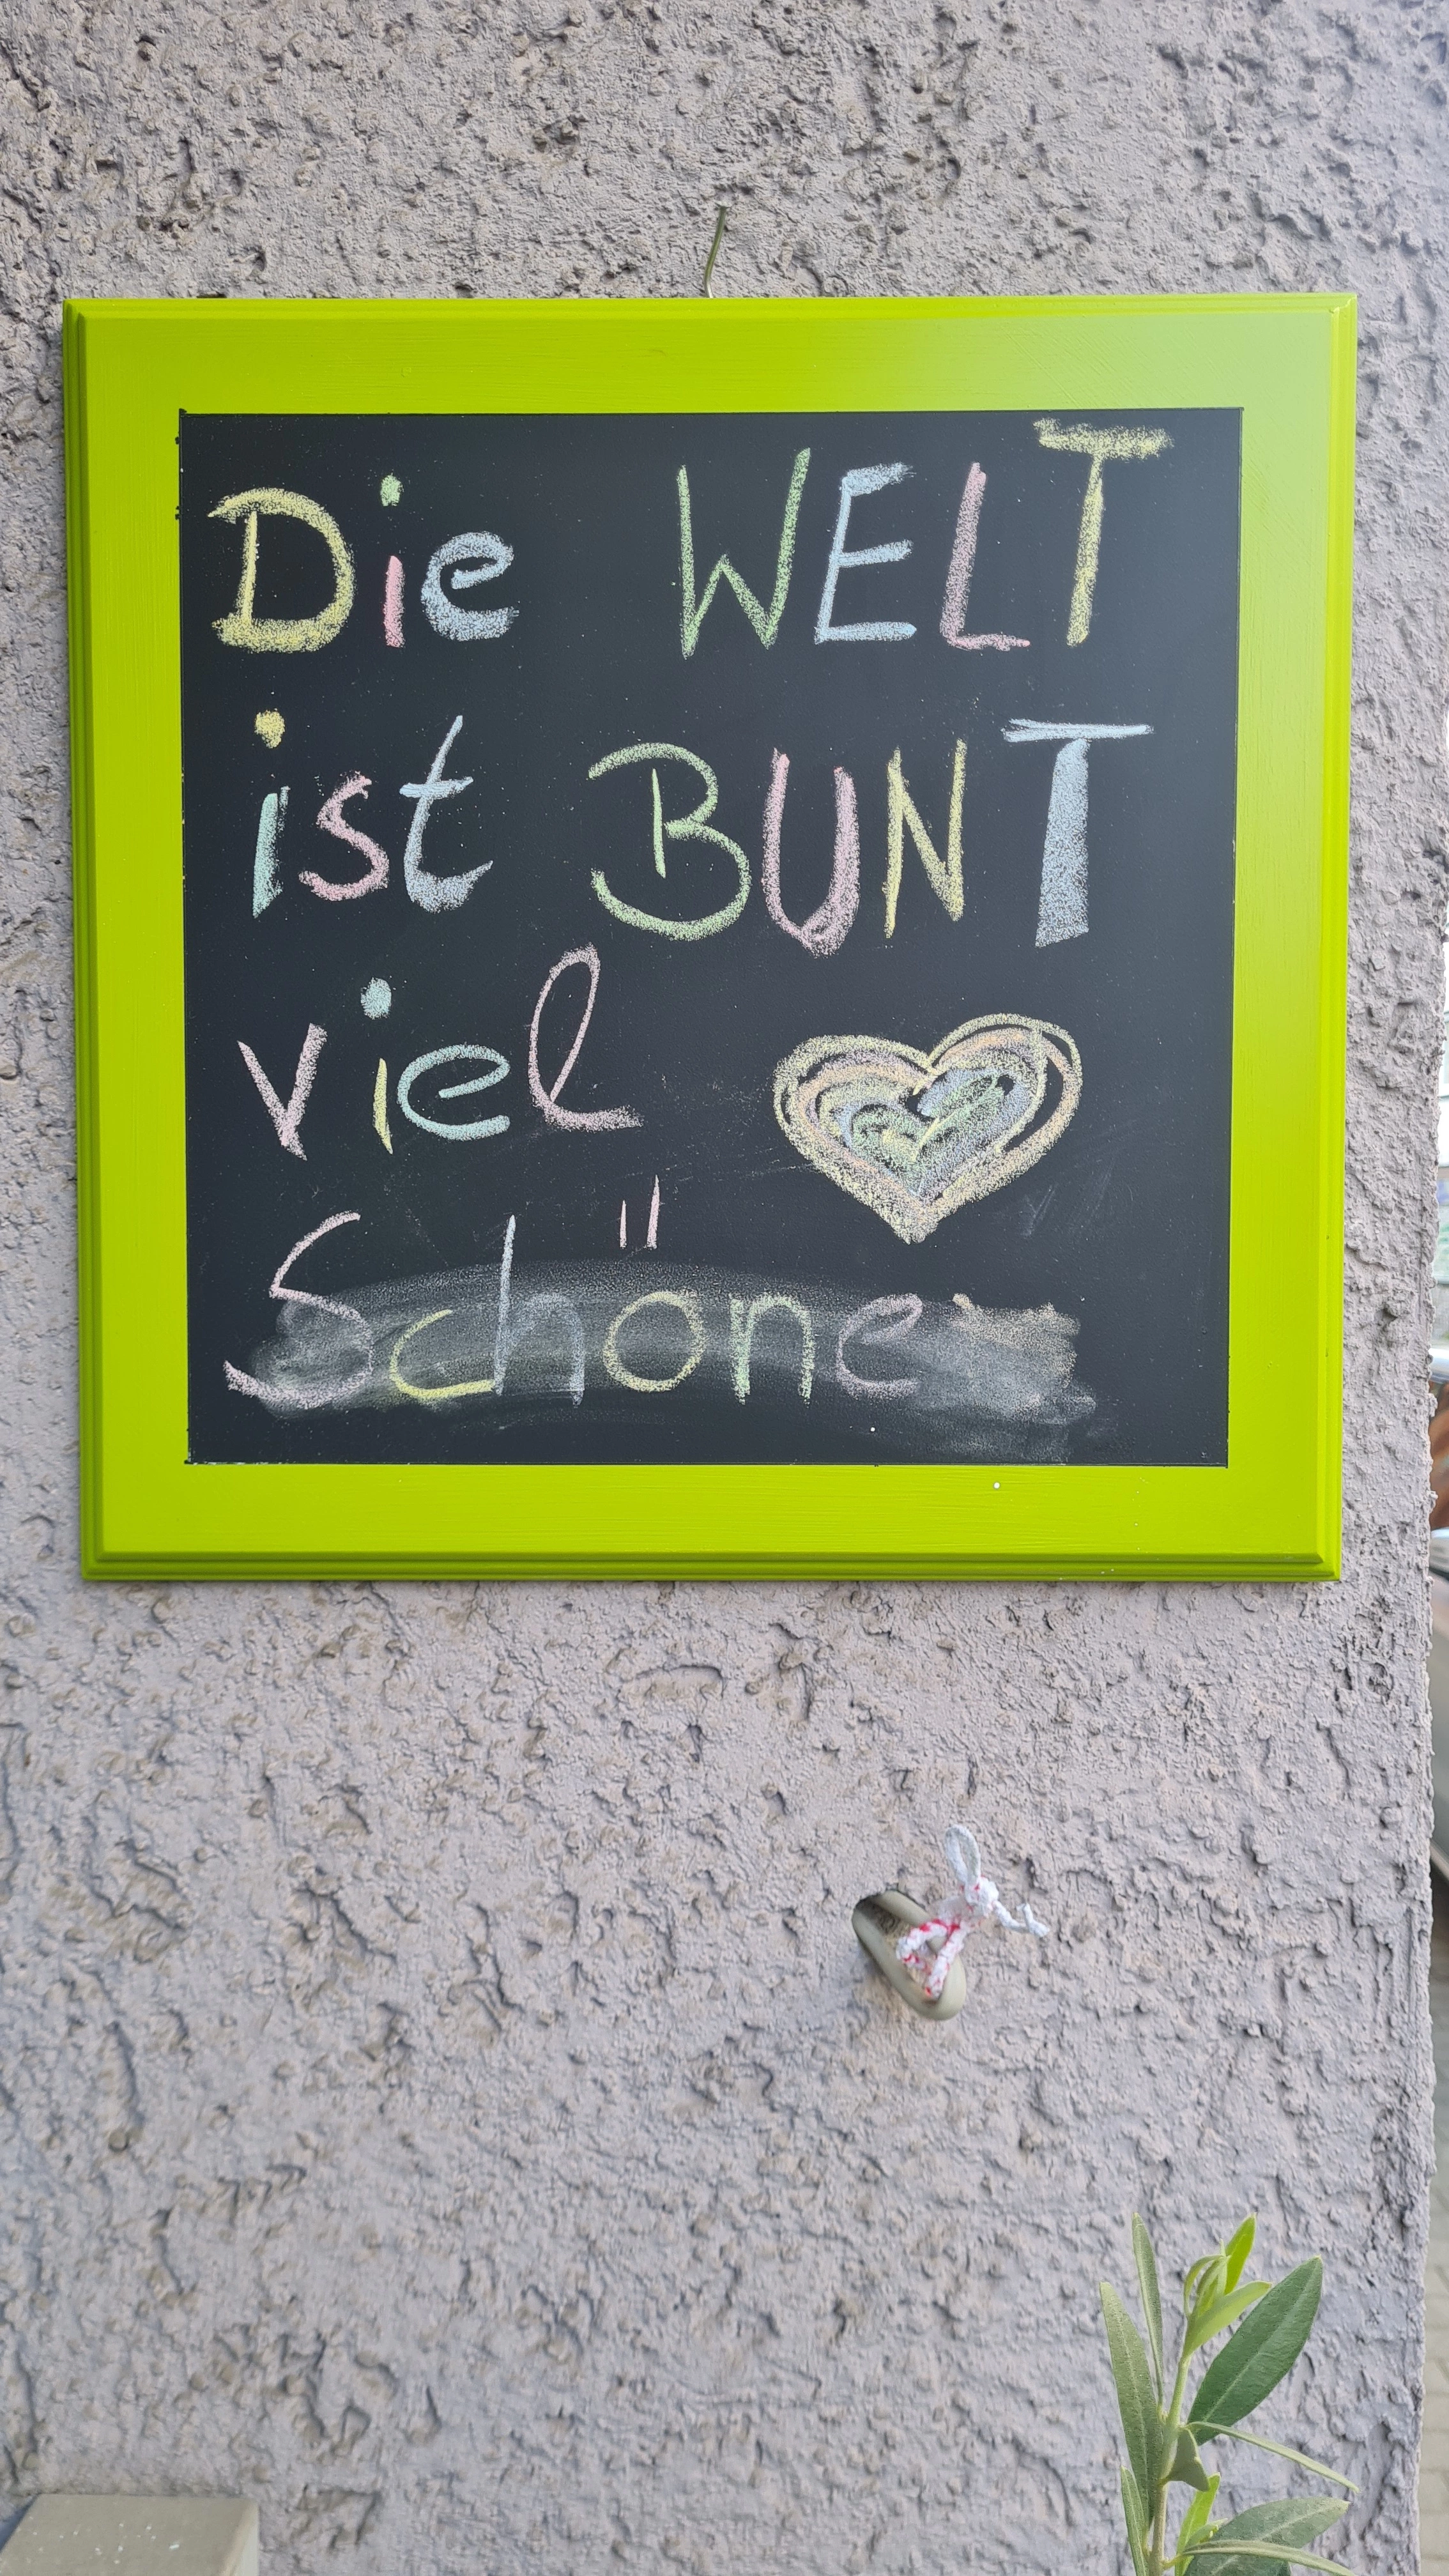 Die WELT
ist BUNT
viel
Schöne